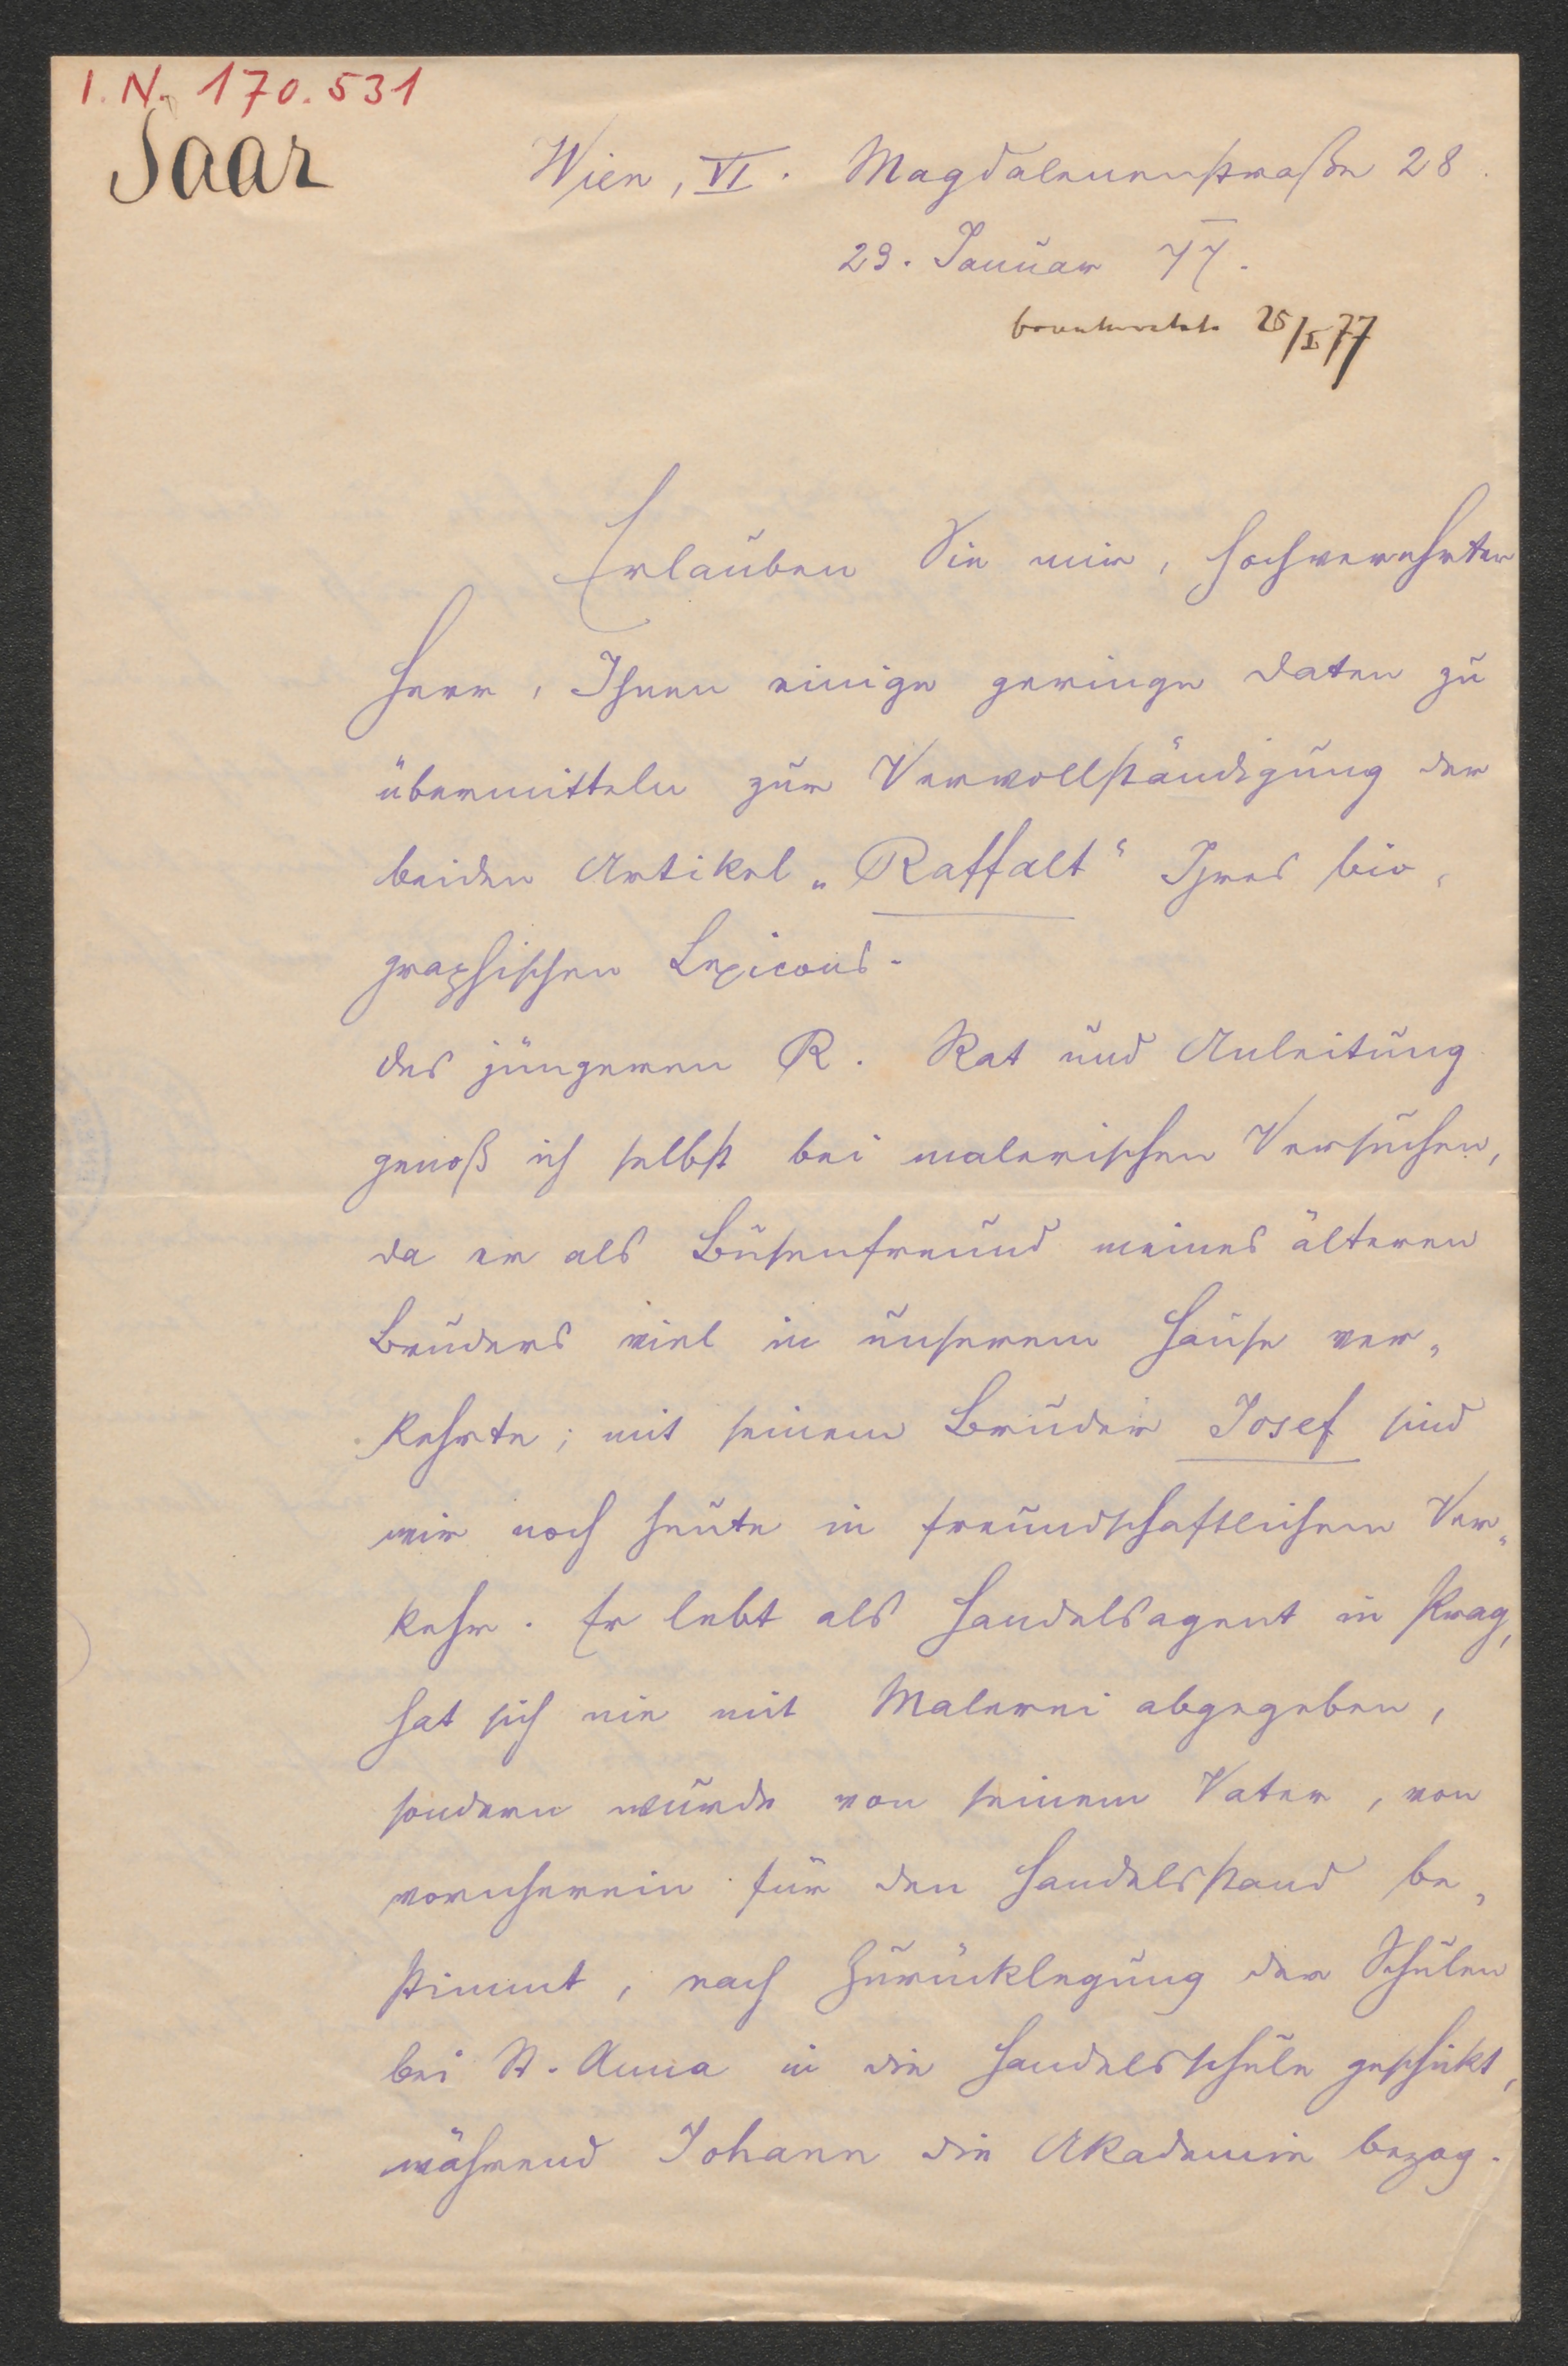 I. N. 170.531
Saar
Wien, VI. Magdalenenstraße 28.
23. Januar 77.
beantwortet 25/I 77
Erlauben Sie mir, hochverehrter
Herr, Ihnen einige geringe Daten zu
übermitteln zur Vervollständigung der
beiden Artikel „Raffalt“ Ihres bio-
graphischen Lexicons.
Des jüngeren R. Rat und Anleitung
genoß ich selbst bei malerischen Versuchen,
da er als Busenfreund meines älteren
Bruders viel in unserem Hause ver-
kehrte; mit seinem Bruder Josef sind
wir noch heute in freundschaftlichem Ver-
kehr. Er lebt als Handelsagent in Prag,
hat sich nie mit Malerei abgegeben,
sondern wurde von seinem Vater, von
vornherein für den Handelsstand be-
stimmt, nach Zurücklegung der Schulen
bei St. Anna in die Handelsschule geschickt,
während Johann die Akademie bezog.